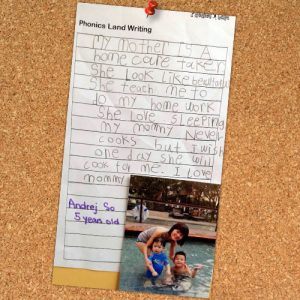 Phonics Land Writing
My mother is a
home care taker
She look like beautiful
She teach me to
do my home work
She love sleeping
my mommy Never
cooks but I wish
one day she will
cook for me. I love
mommy
Andrej So
5 year old